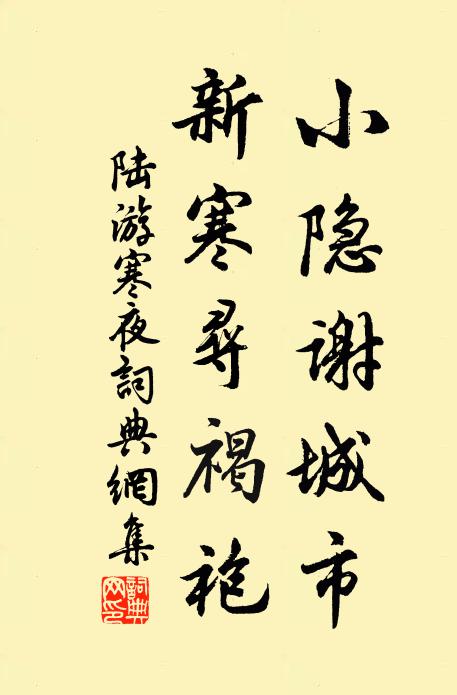 小隐谢城市
新寒尋褐袍
陆游寒夜詞典網集
詞典网印